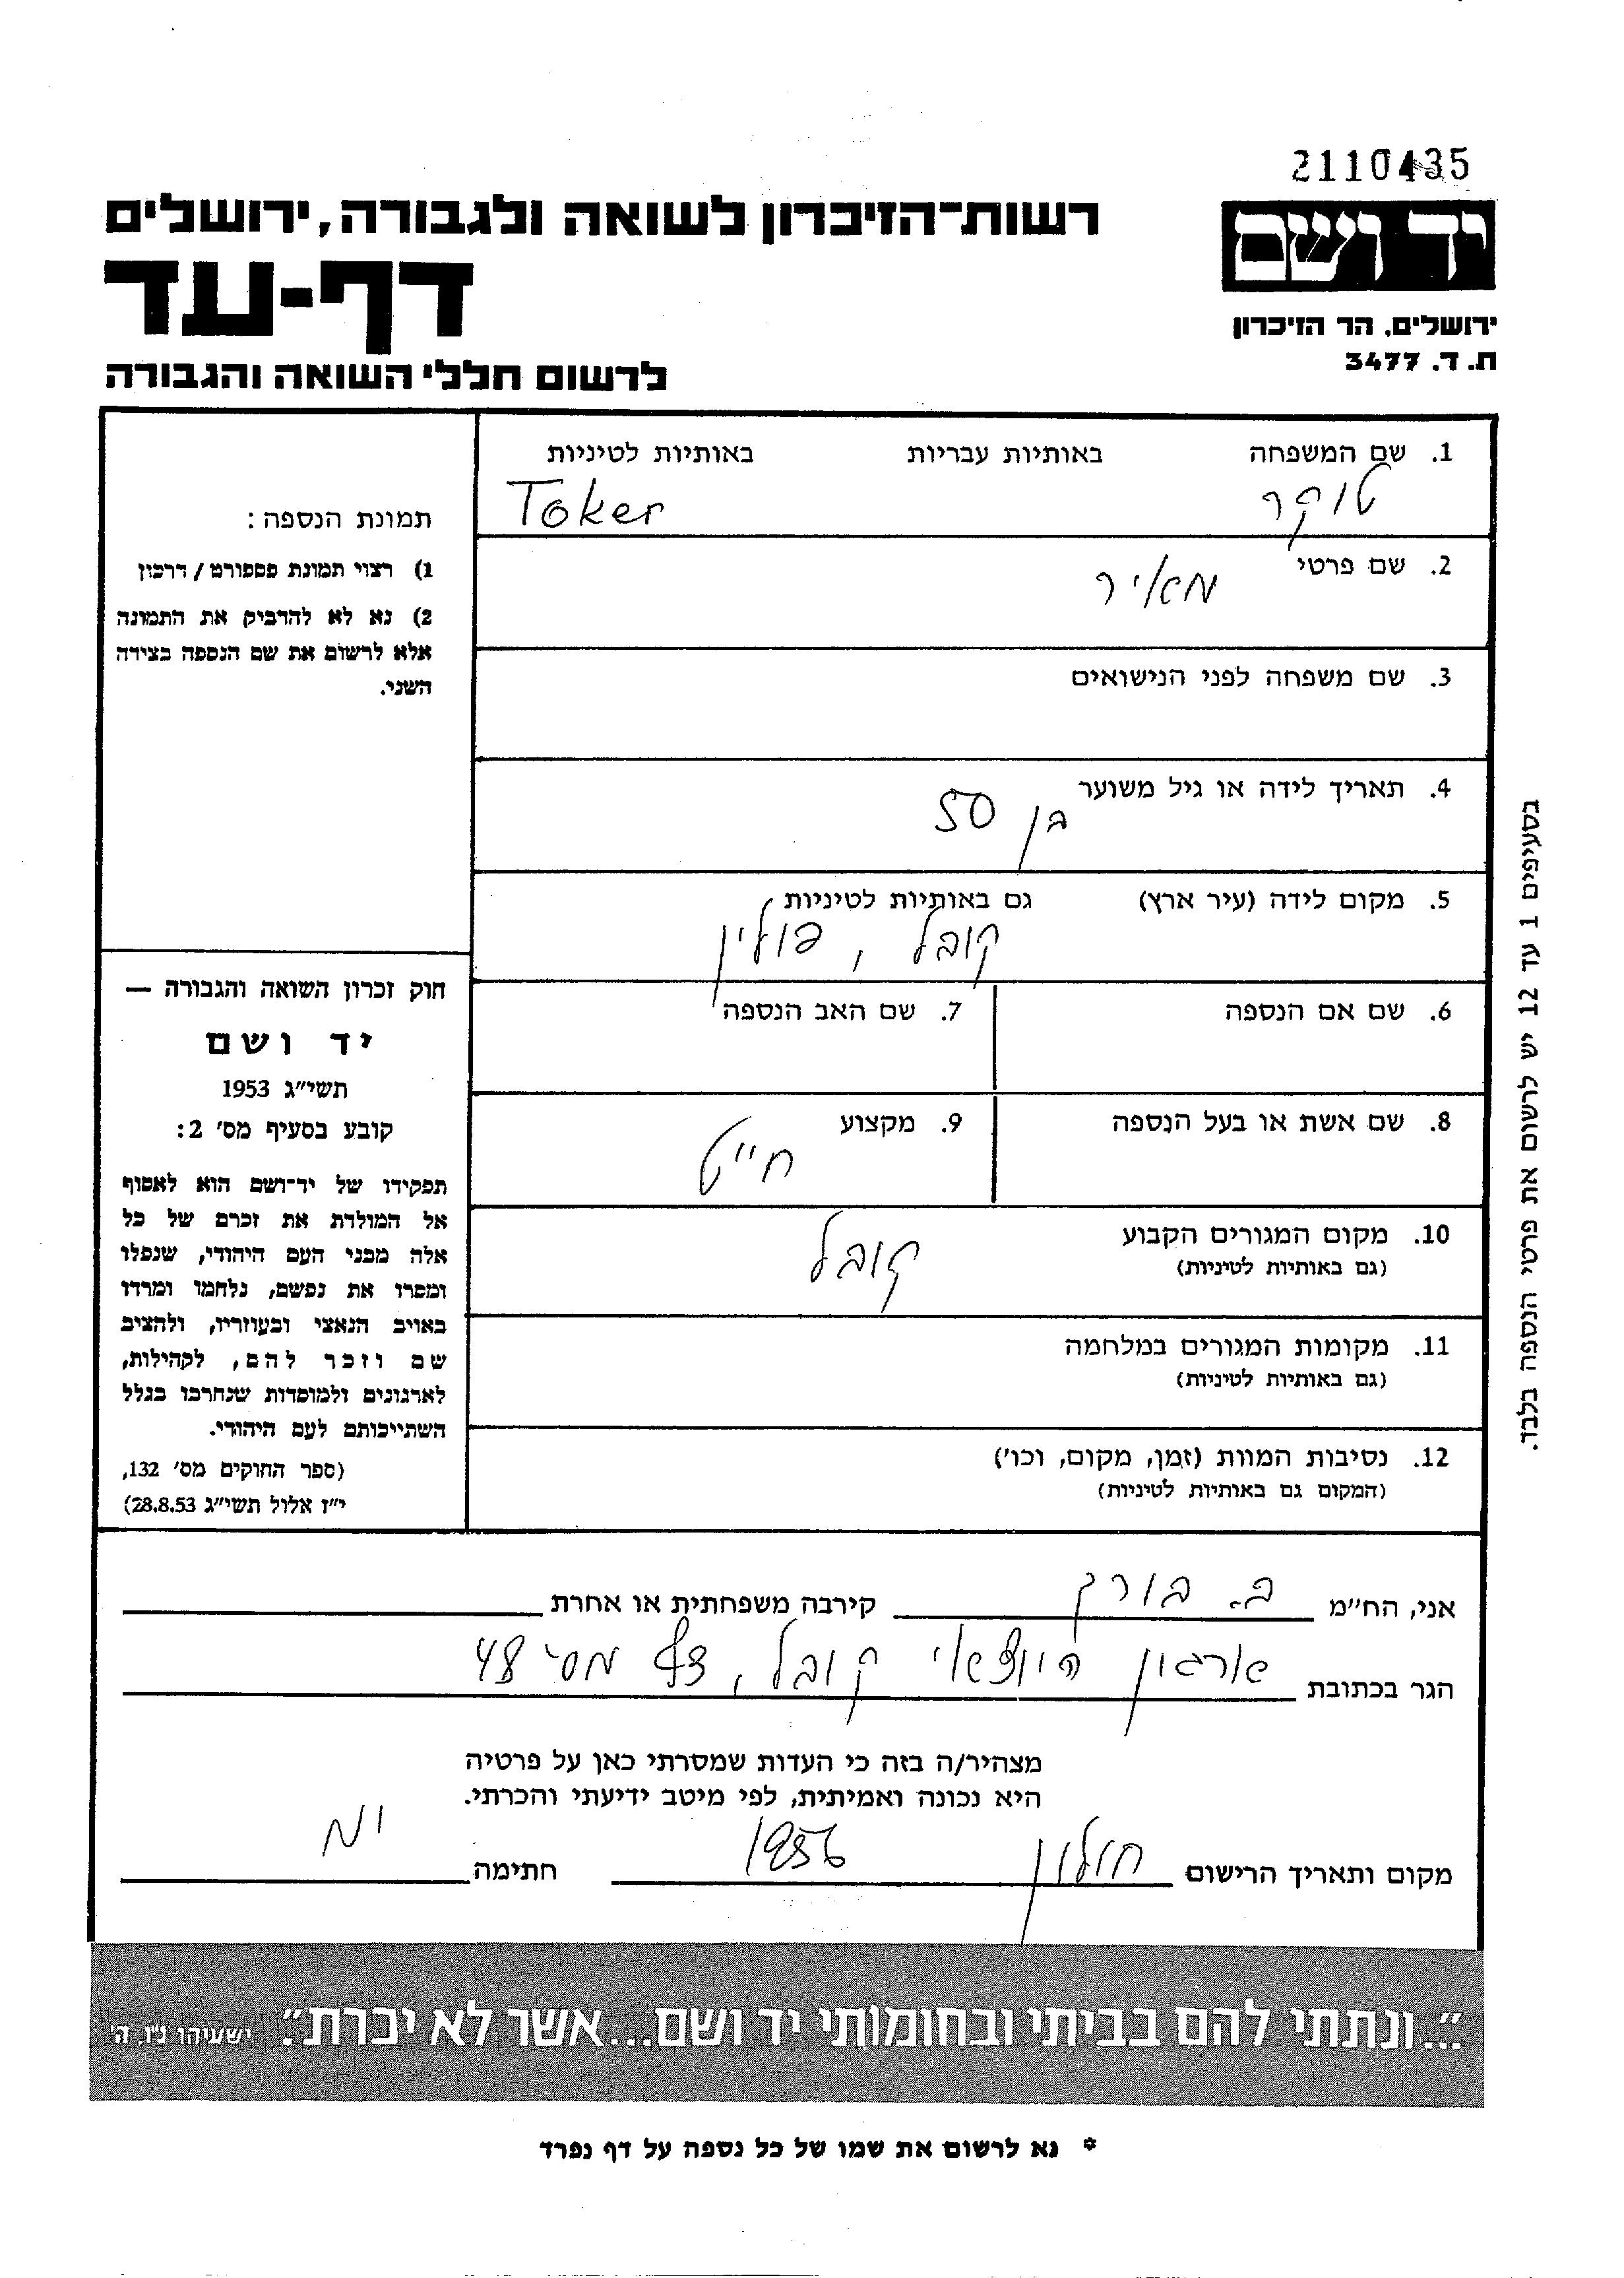 2110435
יד ושם
רשות־הזיכרון לשואה ולגבורה, ירושלים
דף-עד
ירושלים, הר הזיכרון
ת. ד. 3477
לרשום חללי השואה והגבורה
1. שם המשפחה באותיות עבריות באותיות לטיניות
טוקר Toker
2. שם פרטי מאיר
3. שם משפחה לפני הנישואים
4. תאריך לידה או גיל משוער
בן 50
5. מקום לידה (עיר ארץ) גם באותיות לטיניות
קובל, פולין
6. שם אם הנספה 7. שם האב הנספה
8. שם אשת או בעל הנספה 9. מקצוע
חייט
10. מקום המגורים הקבוע
(גם באותיות לטיניות)
קובל
11. מקומות המגורים במלחמה
(גם באותיות לטיניות)
12. נסיבות המוות (זמן, מקום, וכו')
(המקום גם באותיות לטיניות)
תמונת הנספה:
1) רצוי תמונת פספורט/דרכון
2) נא לא להדביק את התמונה
אלא לרשום את שם הנספה בצידה
השני.
חוק זכרון השואה והגבורה —
יד ושם
תשי"ג 1953
קובע בסעיף מס' 2:
תפקידו של יד־ושם הוא לאסוף
אל המולדת את זכרם של כל
אלה מבני העם היהודי, שנפלו
ומסרו את נפשם, נלחמו ומרדו
באויב הנאצי ובעוזריו, ולהציב
שם וזכר להם, לקהילות,
לארגונים ולמוסדות שנחרבו בגלל
השתייכותם לעם היהודי.
(ספר החוקים מס' 132,
י"ז אלול תשי"ג 28.8.53)
בסעיפים 1 עד 12 יש לרשום את פרטי הנספה בלבד.
אני, הח"מ ב. בורק קירבה משפחתית או אחרת
הגר בכתובת ארגון היוצאי קובל, דף מס' 48
מצהיר/ה בזה כי העדות שמסרתי כאן על פרטיה
היא נכונה ואמיתית, לפי מיטב ידיעתי והכרתי.
מקום ותאריך הרישום חולון חתימה
"...ונתתי להם בביתי ובחומותי יד ושם...אשר לא יכרת". ישעיהו נ"ו, ה'
* נא לרשום את שמו של כל נספה על דף נפרד